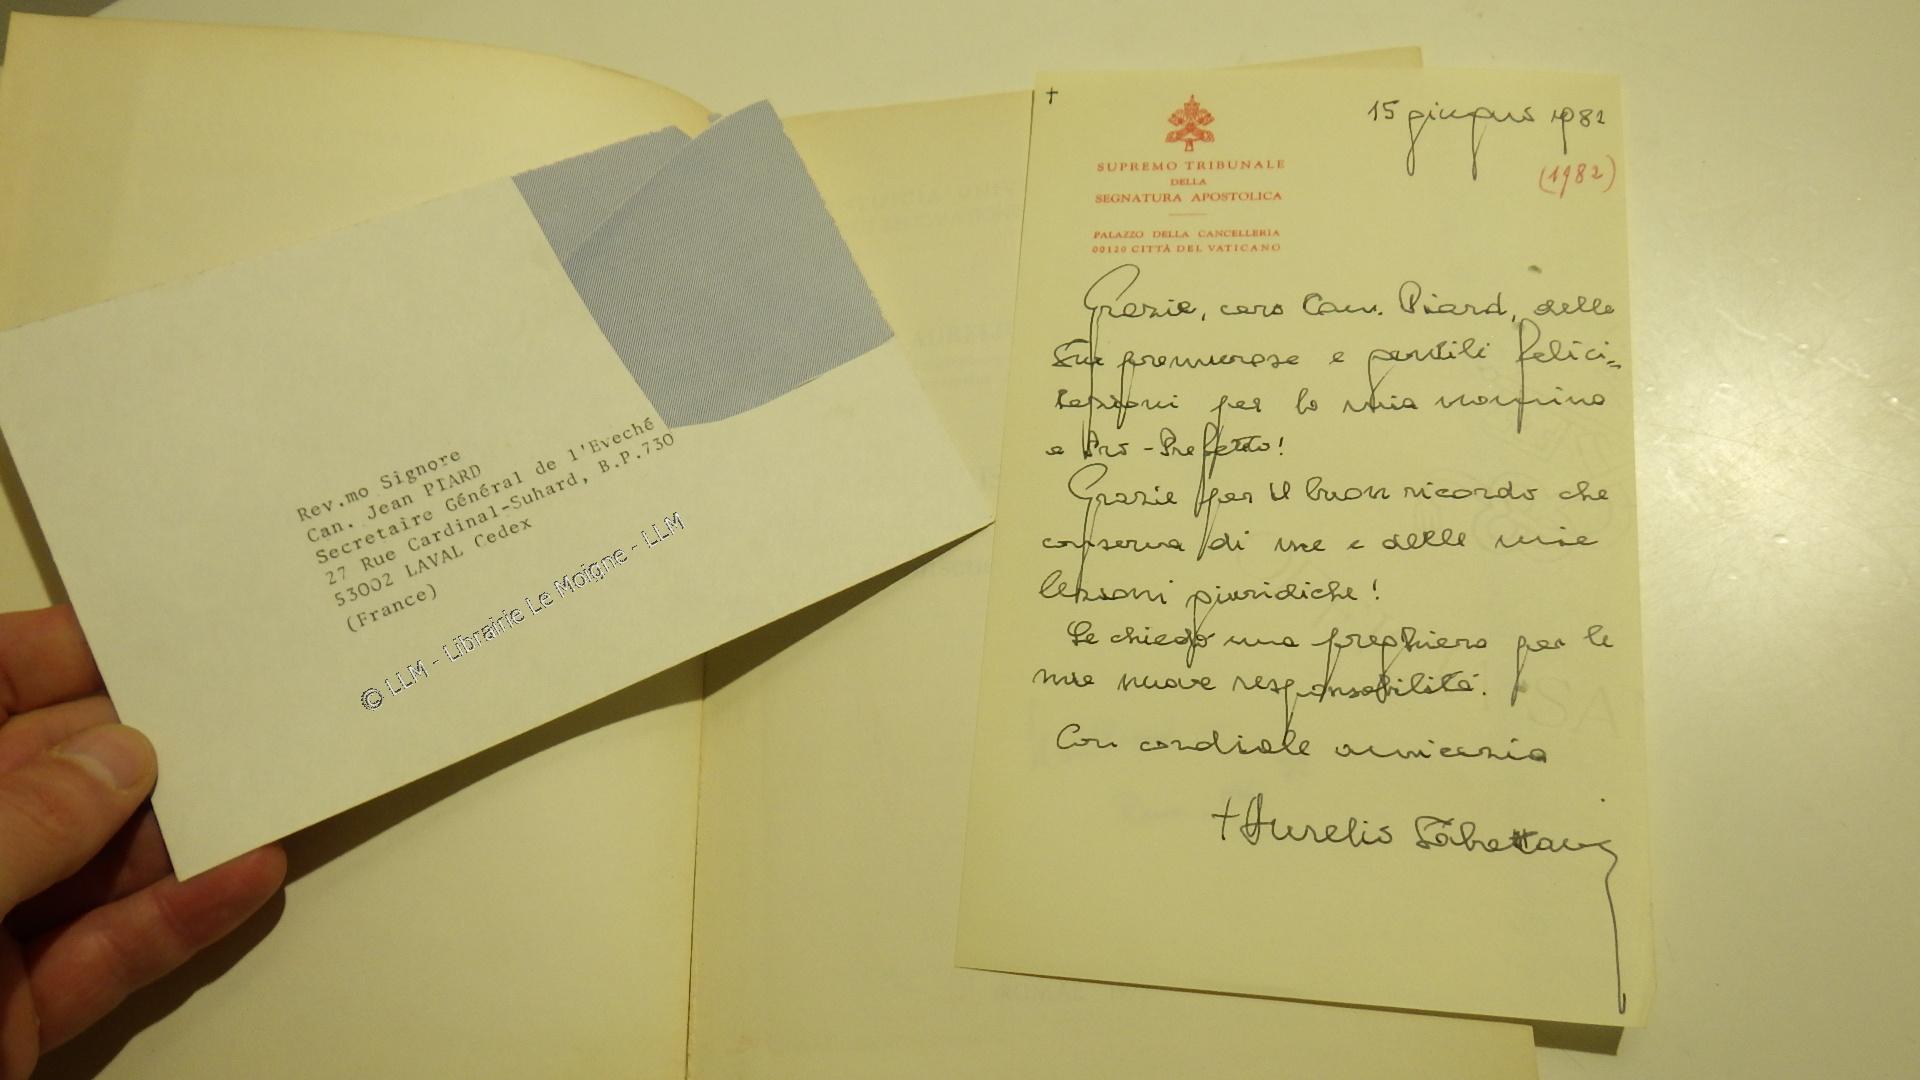 Rev.mo Signore
Can. Jean PIARD
Secretaire Général de l'Eveché
27 Rue Cardinal-Suhard, B.P.730
53002 LAVAL Cedex
(France)
© LLM - Librairie Le Moigne - LLM
†
15 giugno 1982
(1982)
SUPREMO TRIBUNALE
DELLA
SEGNATURA APOSTOLICA
PALAZZO DELLA CANCELLERIA
00120 CITTÀ DEL VATICANO
Grazie, caro Can. Piard, delle
Sue premurose e gentili felici=
tazioni per la mia nomina
a Pro-Prefetto!
Grazie per il buon ricordo che
conserva di me e delle mie
lezioni giuridiche!
Le chiedo una preghiera per le
mie nuove responsabilità.
Con cordiale amicizia
† Aurelio Sabattani